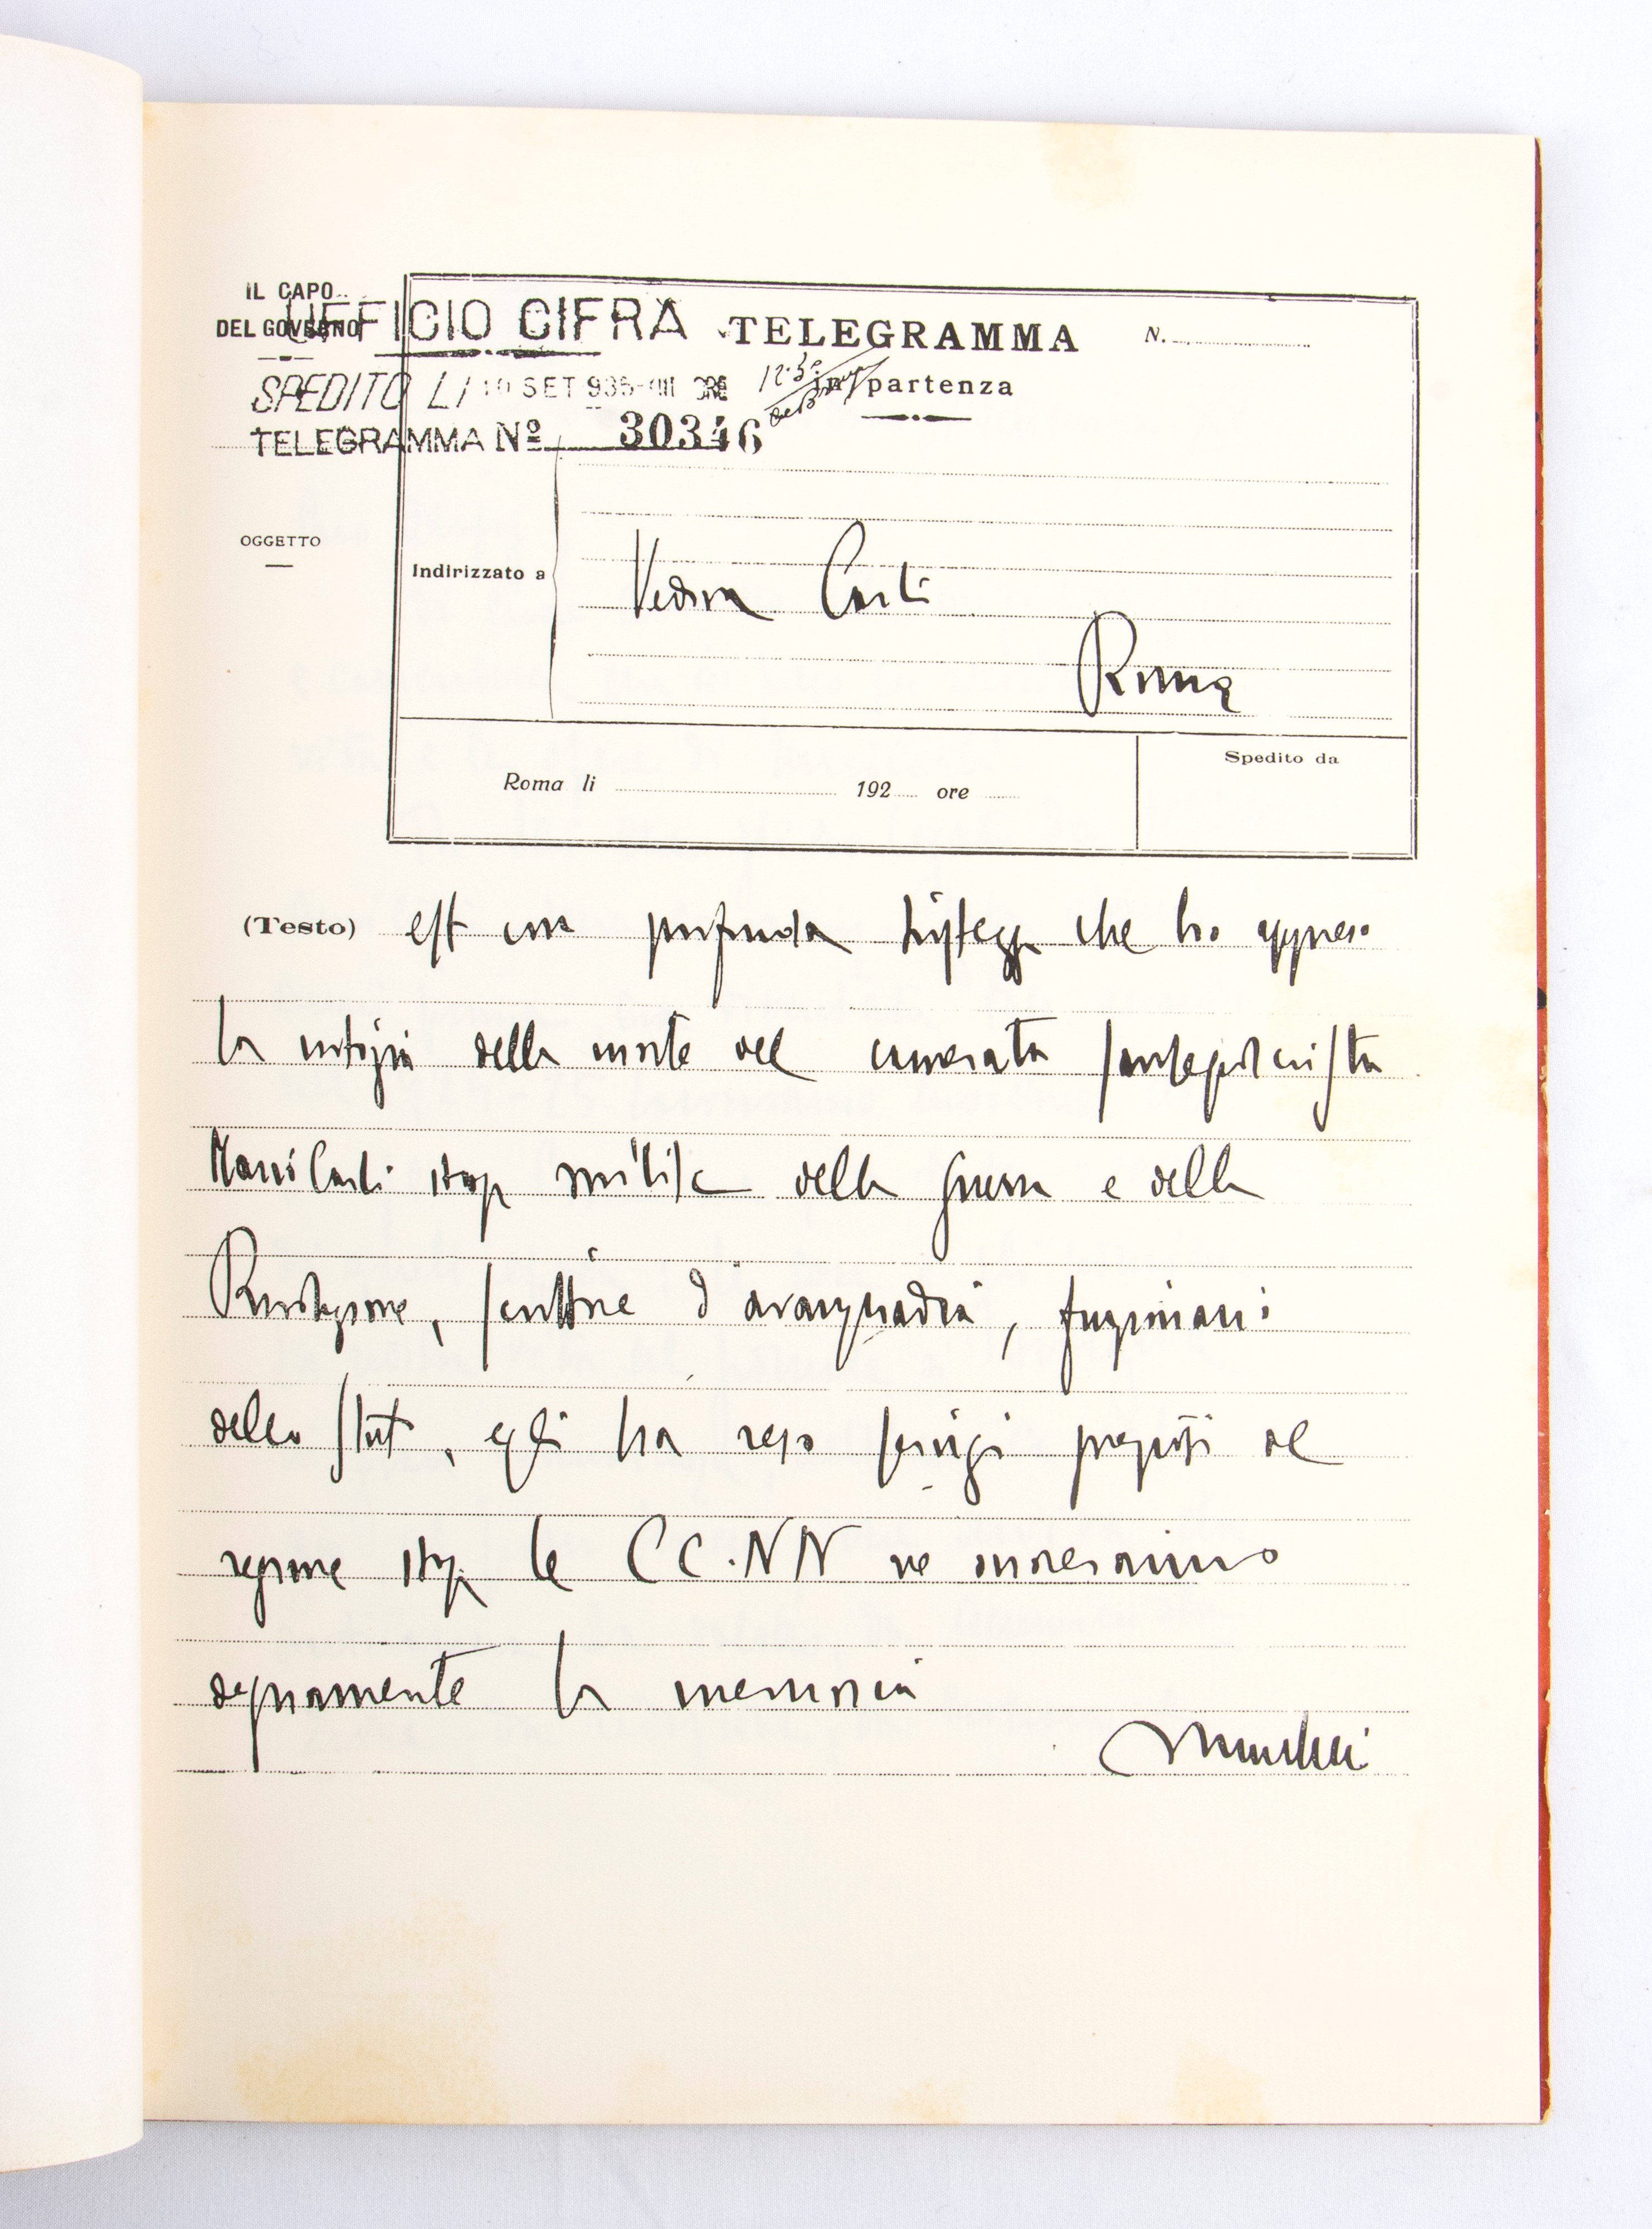 IL CAPO
DEL GOVERNO
UFFICIO CIFRA
TELEGRAMMA N.
SPEDITO LI 10 SET 935-XIII ORE 12.30
in partenza
TELEGRAMMA Nº 30346
OGGETTO
Indirizzato a
Vedova Carli
Roma
Roma li 192 ore
Spedito da
(Testo) est con profonda tristezza che ho appreso
la notizia della morte del camerata sansepolcrista
Mario Carli stop milite della guerra e della
Rivoluzione, scrittore d'avanguardia, funzionario
dello Stato, egli ha reso servizi preziosi al
regime stop le CC.NN ne onoreranno
degnamente la memoria
Mussolini